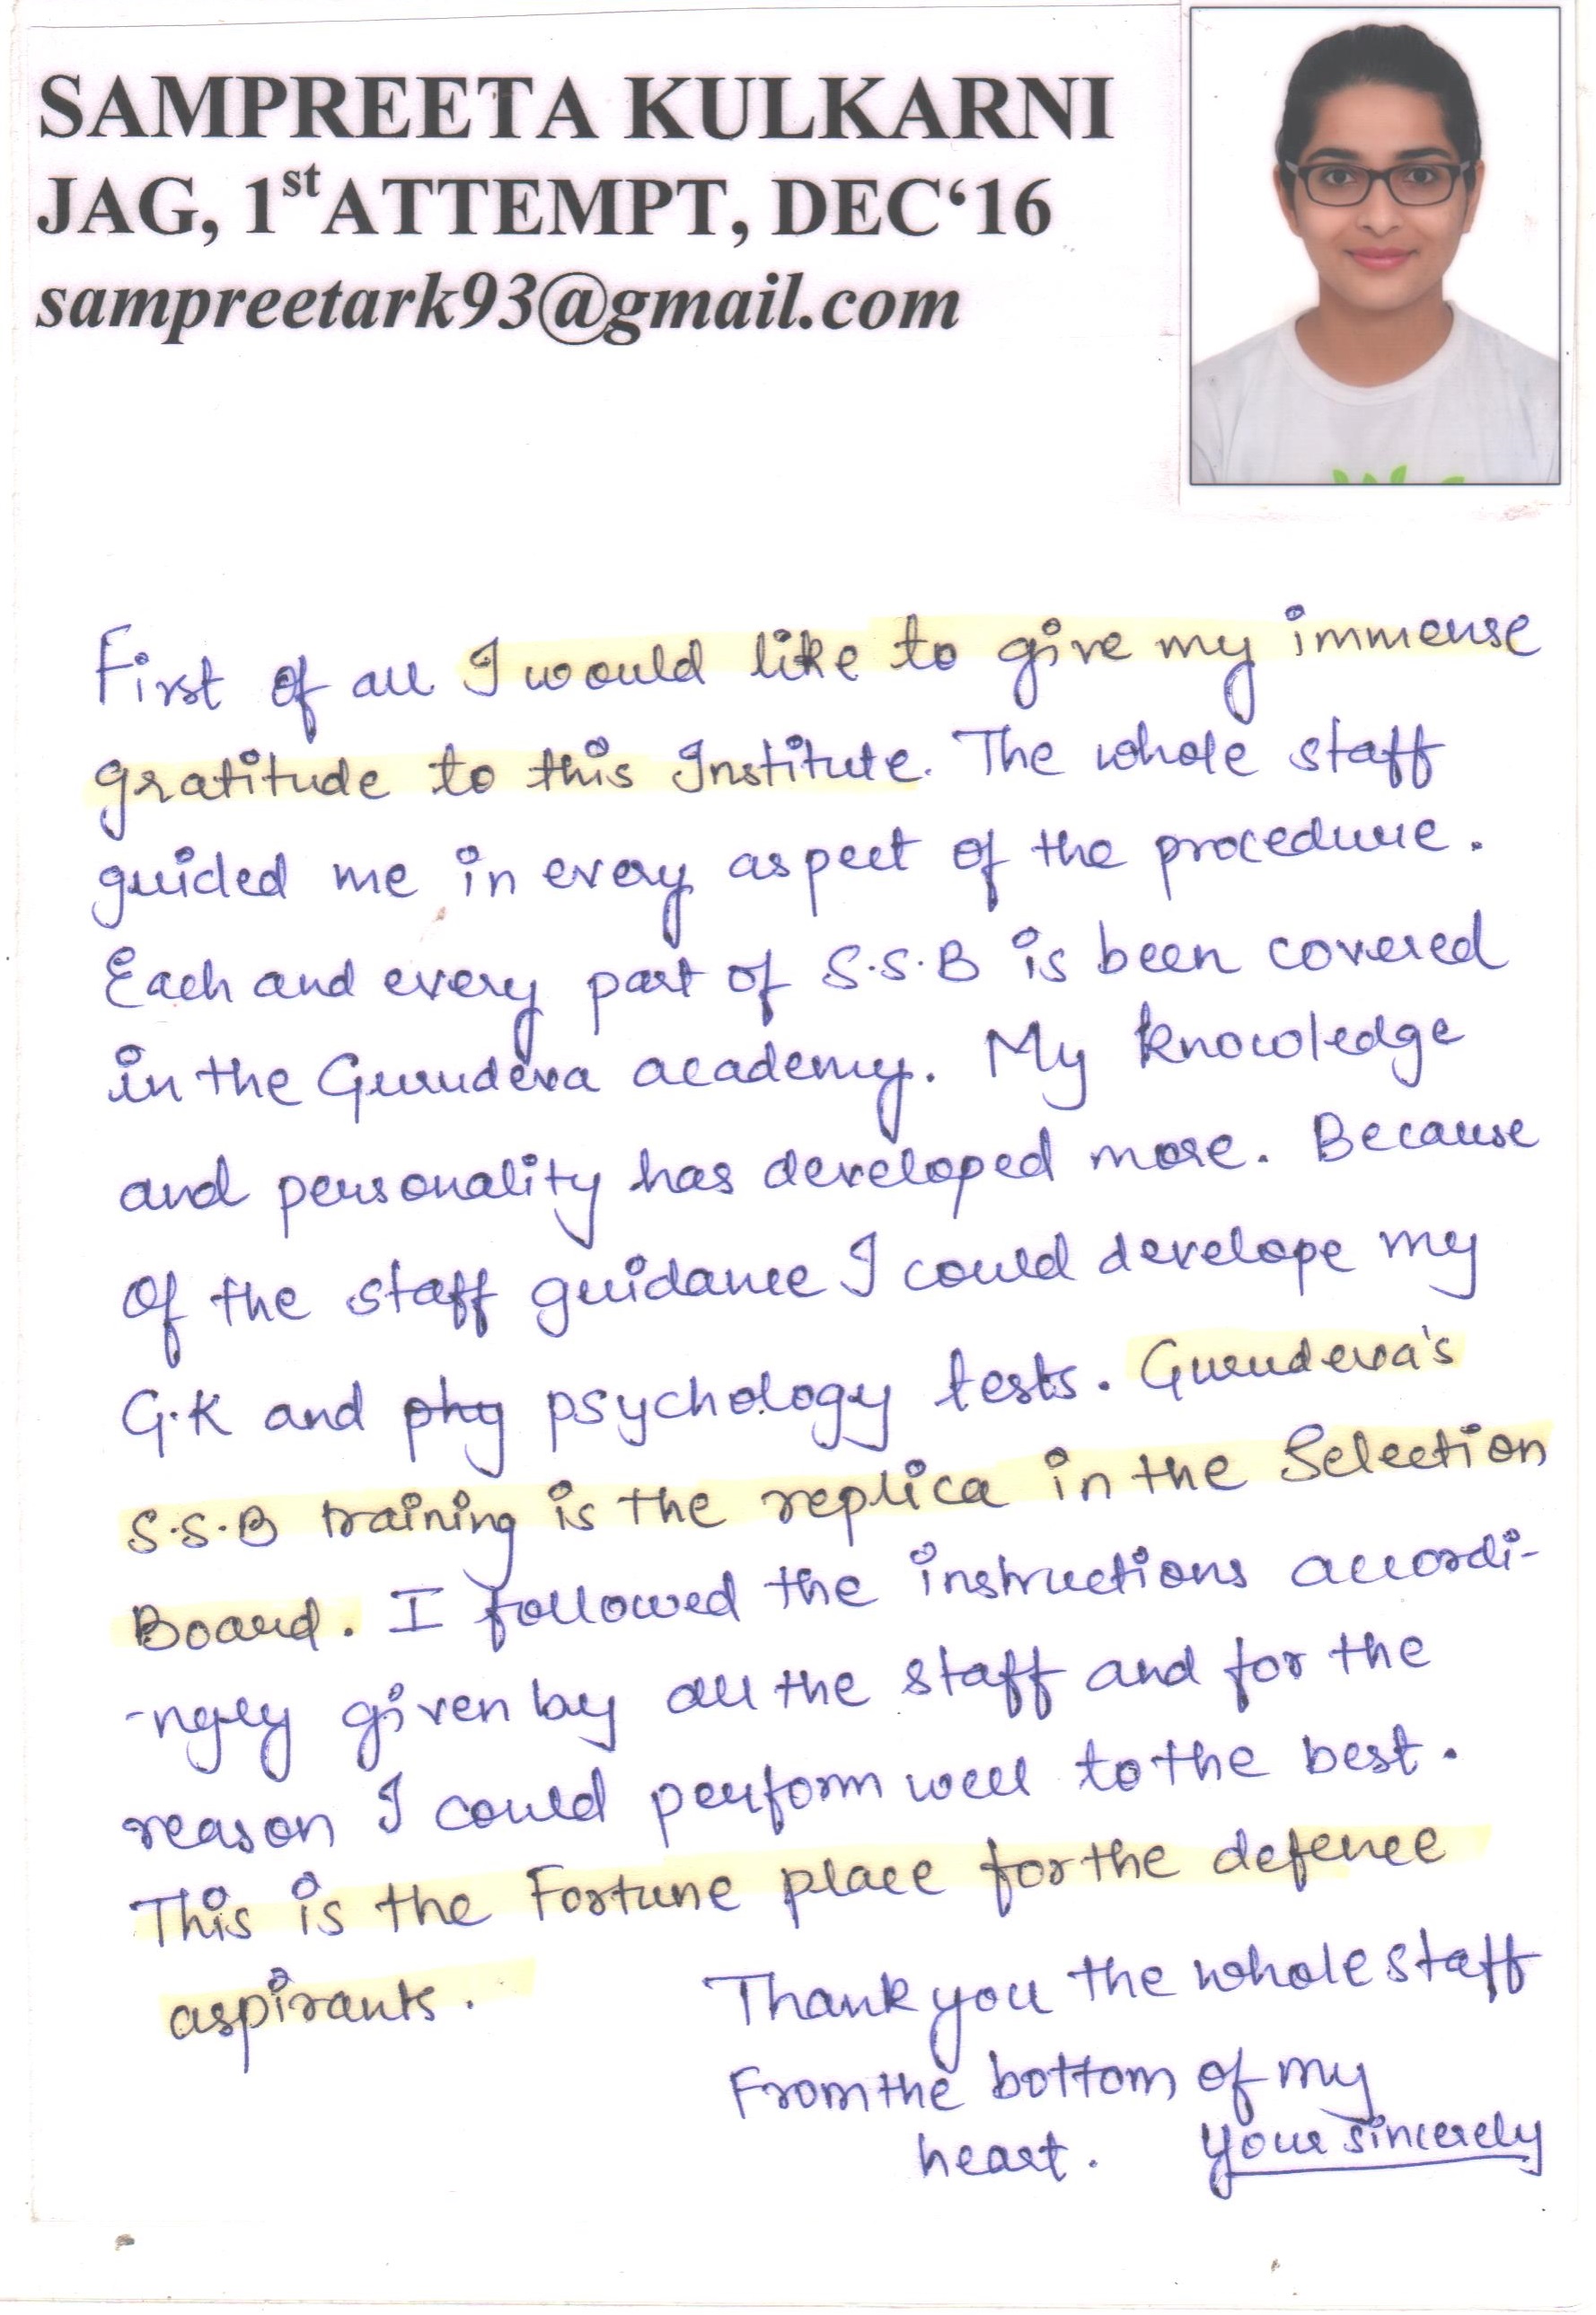 SAMPREETA KULKARNI
JAG, 1st ATTEMPT, DEC‘16
sampreetark93@gmail.com
First of all I would like to give my immense
gratitude to this Institute. The whole staff
guided me in every aspect of the procedure.
Each and every part of S.S.B is been covered
in the Gurudeva academy. My knowledge
and personality has developed more. Because
of the staff guidance I could develope my
G.K and phy psychology tests. Gurudeva's
S.S.B training is the replica in the Selection
Board. I followed the instructions accordi-
-ngly given by all the staff and for the
reason I could perform well to the best.
This is the Fortune place for the defence
aspirants.
Thank you the whole staff
From the bottom of my
heart. Your sincerely